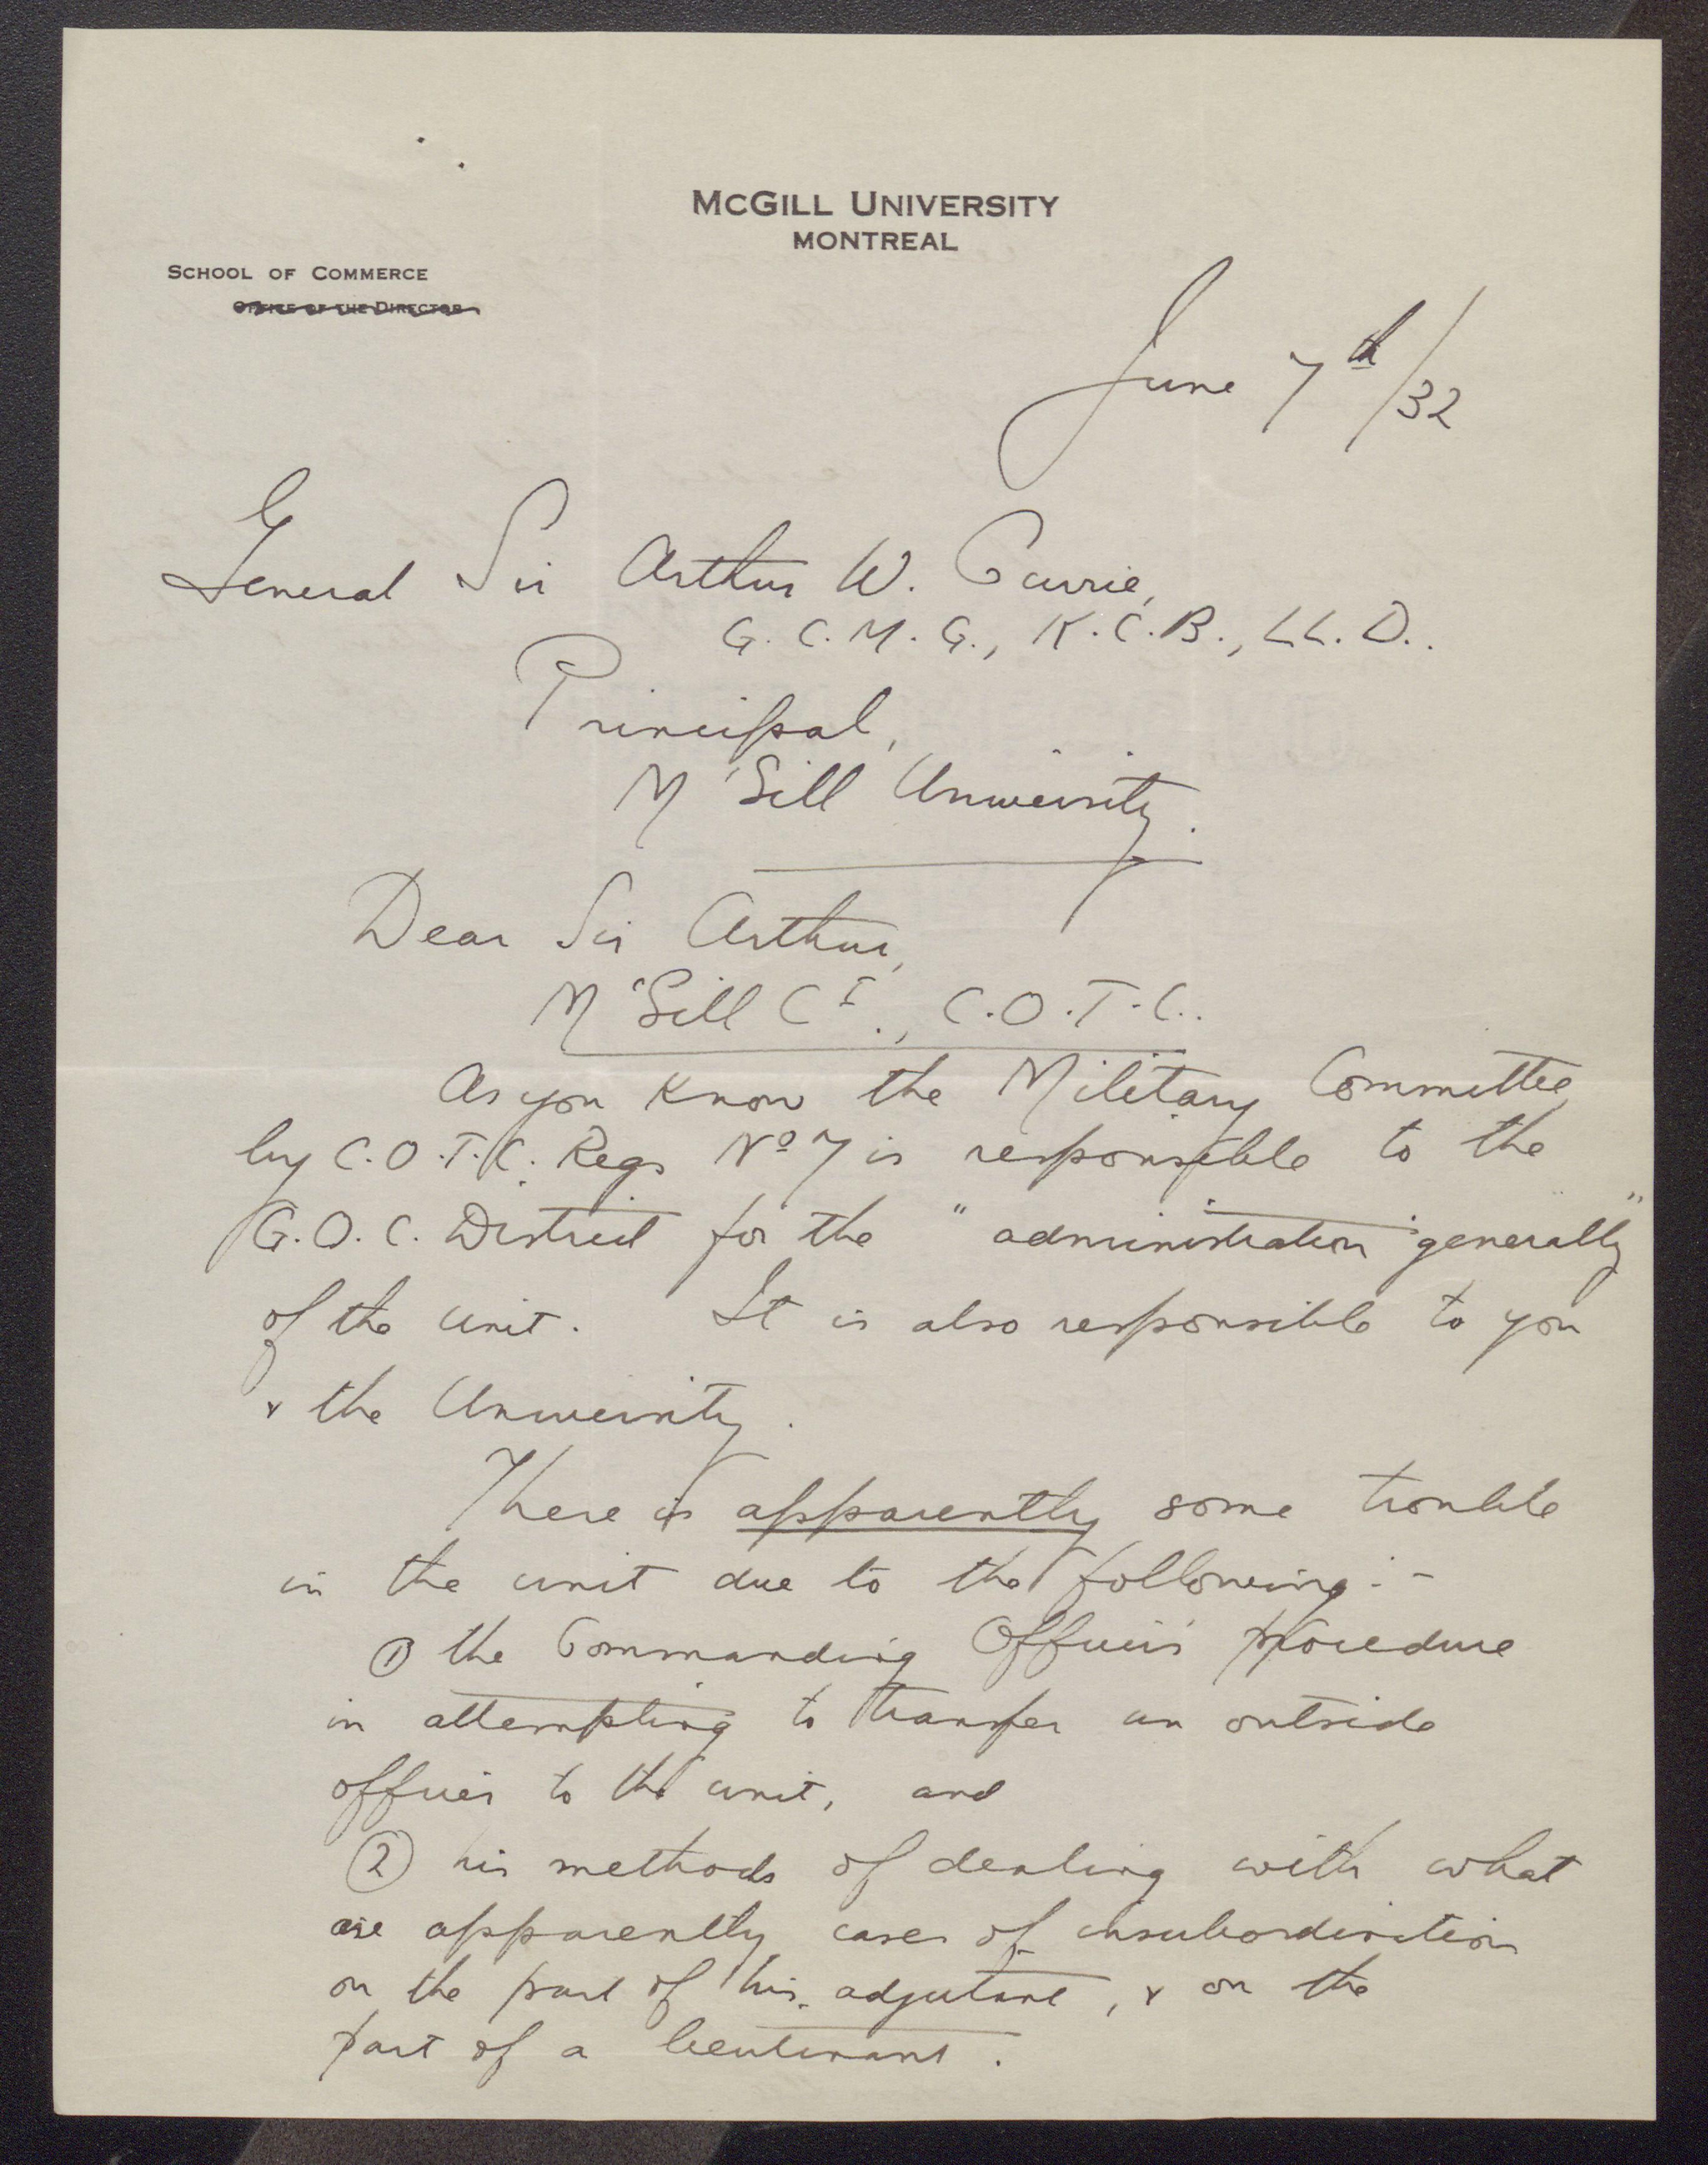 McGILL UNIVERSITY
MONTREAL
SCHOOL OF COMMERCE
OFFICE OF THE DIRECTOR
June 7th/32
General Sir Arthur W. Currie,
G.C.M.G., K.C.B., LL.D..
Principal,
M'Gill University.
Dear Sir Arthur,
M'Gill Ct., C.O.T.C..
As you know the Military Committee,
by C.O.T.C. Regs No 7 is responsible to the
G.O.C. District for the "administration generally"
of the unit. It is also responsible to you
& the University.
There is apparently some trouble
in the unit due to the following:-
① the Commanding Officer's procedure
in attempting to transfer an outside
officer to the unit, and
② his methods of dealing with what
are apparently cases of insubordination
on the part of his adjutant, & on the
part of a lieutenant.